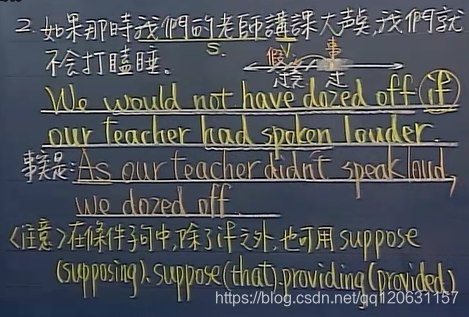 2. 如果那時我們的老師講課大声点,我們就
S. V.
不会打瞌睡。
假 事
过完 过
We would not have dozed off if
our teacher had spoken louder.
事実是:As our teacher didn't speak loud,
we dozed off.
<注意>在條件子句中,除了if之外,也可用suppose
(supposing).suppose(that).providing(provided)
https://blog.csdn.net/qq120631157